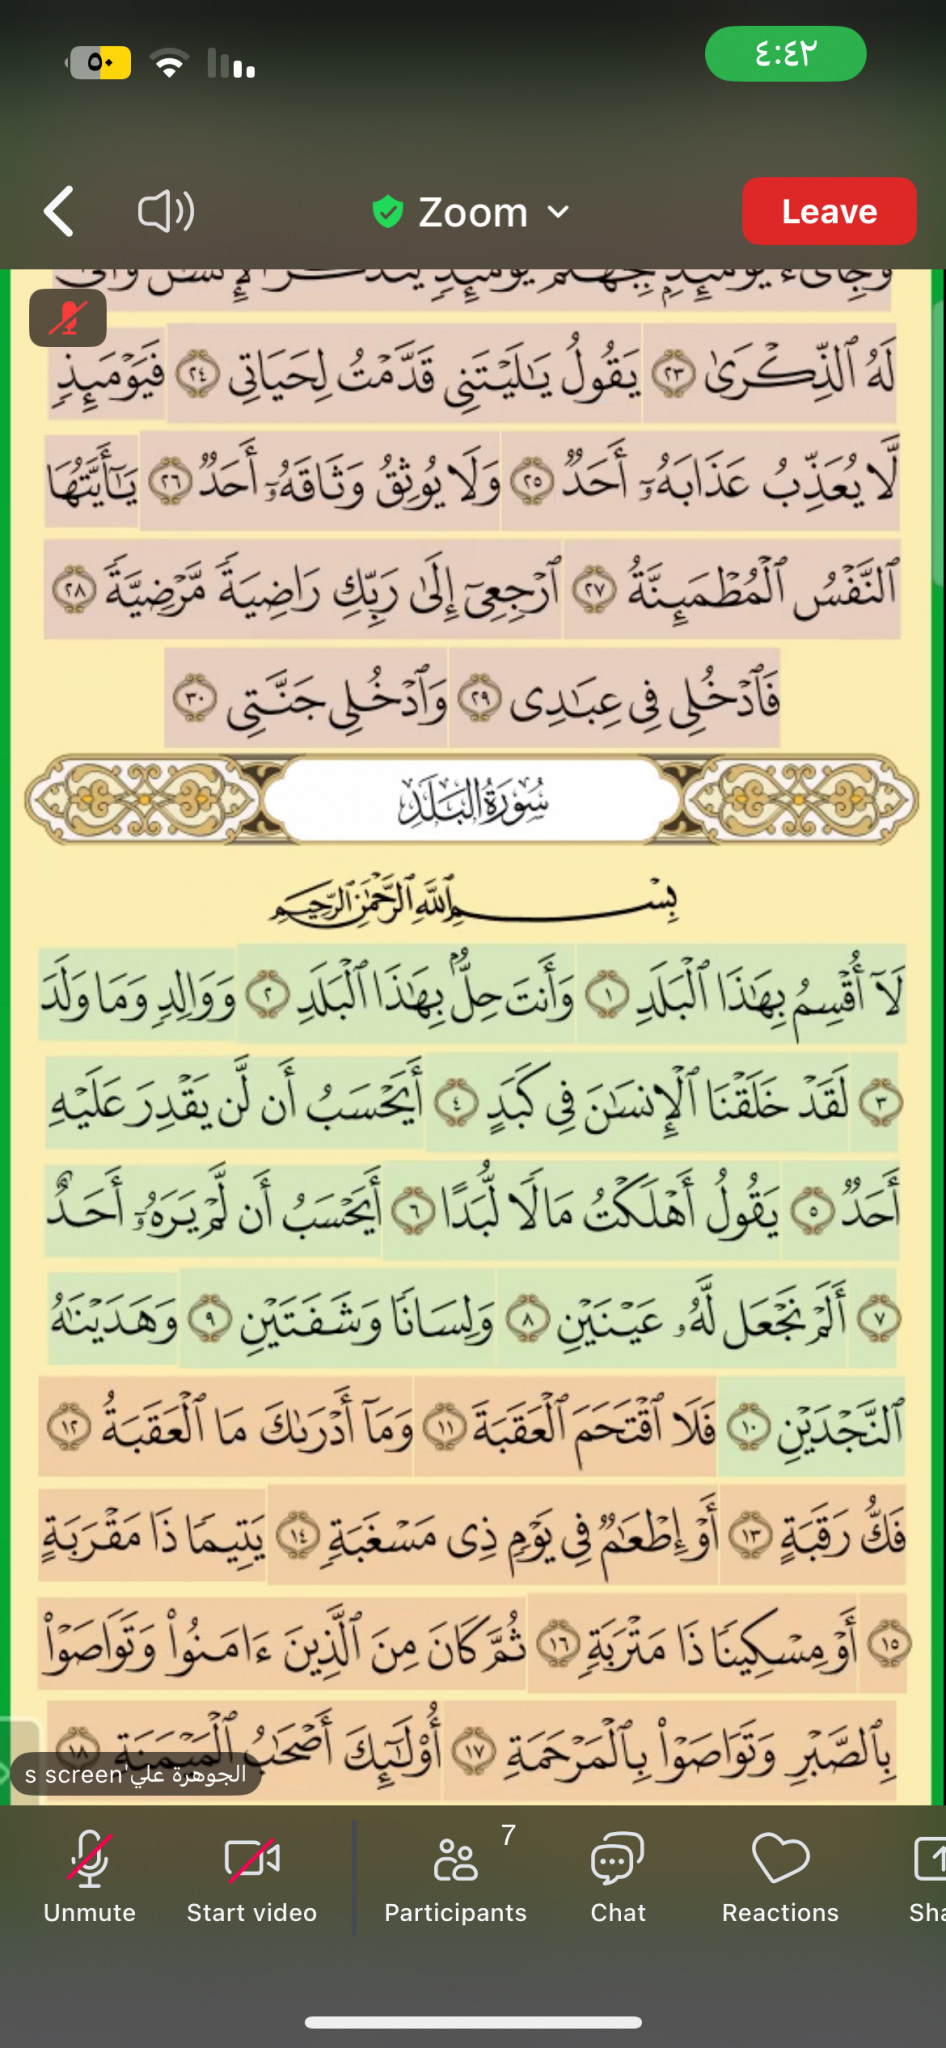 ٥٠
٤:٤٢
Zoom
Leave
وَجِا۟ىٓءَ يَوْمَئِذٍۭ بِجَهَنَّمَ يَوْمَئِذٍ يَتَذَكَّرُ ٱلْإِنسَـٰنُ وَأَنَّىٰ
لَهُ ٱلذِّكْرَىٰ ٢٣ يَقُولُ يَـٰلَيْتَنِى قَدَّمْتُ لِحَيَاتِى ٢٤ فَيَوْمَئِذٍ
لَّا يُعَذِّبُ عَذَابَهُۥٓ أَحَدٌ ٢٥ وَلَا يُوثِقُ وَثَاقَهُۥٓ أَحَدٌ ٢٦ يَـٰٓأَيَّتُهَا
ٱلنَّفْسُ ٱلْمُطْمَئِنَّةُ ٢٧ ٱرْجِعِىٓ إِلَىٰ رَبِّكِ رَاضِيَةً مَّرْضِيَّةً ٢٨
فَٱدْخُلِى فِى عِبَـٰدِى ٢٩ وَٱدْخُلِى جَنَّتِى ٣٠
سُورَةُ البَلَدِ
بِسْمِ ٱللَّهِ ٱلرَّحْمَـٰنِ ٱلرَّحِيمِ
لَآ أُقْسِمُ بِهَـٰذَا ٱلْبَلَدِ ١ وَأَنتَ حِلٌّۢ بِهَـٰذَا ٱلْبَلَدِ ٢ وَوَالِدٍ وَمَا وَلَدَ
٣ لَقَدْ خَلَقْنَا ٱلْإِنسَـٰنَ فِى كَبَدٍ ٤ أَيَحْسَبُ أَن لَّن يَقْدِرَ عَلَيْهِ
أَحَدٌ ٥ يَقُولُ أَهْلَكْتُ مَالًا لُّبَدًا ٦ أَيَحْسَبُ أَن لَّمْ يَرَهُۥٓ أَحَدٌ
٧ أَلَمْ نَجْعَل لَّهُۥ عَيْنَيْنِ ٨ وَلِسَانًا وَشَفَتَيْنِ ٩ وَهَدَيْنَـٰهُ
ٱلنَّجْدَيْنِ ١٠ فَلَا ٱقْتَحَمَ ٱلْعَقَبَةَ ١١ وَمَآ أَدْرَىٰكَ مَا ٱلْعَقَبَةُ ١٢
فَكُّ رَقَبَةٍ ١٣ أَوْ إِطْعَـٰمٌ فِى يَوْمٍ ذِى مَسْغَبَةٍ ١٤ يَتِيمًا ذَا مَقْرَبَةٍ
١٥ أَوْ مِسْكِينًا ذَا مَتْرَبَةٍ ١٦ ثُمَّ كَانَ مِنَ ٱلَّذِينَ ءَامَنُوا۟ وَتَوَاصَوْا۟
بِٱلصَّبْرِ وَتَوَاصَوْا۟ بِٱلْمَرْحَمَةِ ١٧ أُو۟لَـٰٓئِكَ أَصْحَـٰبُ ٱلْمَيْمَنَةِ ١٨
الجوهرة علي's screen
7
Unmute Start video Participants Chat Reactions Sha